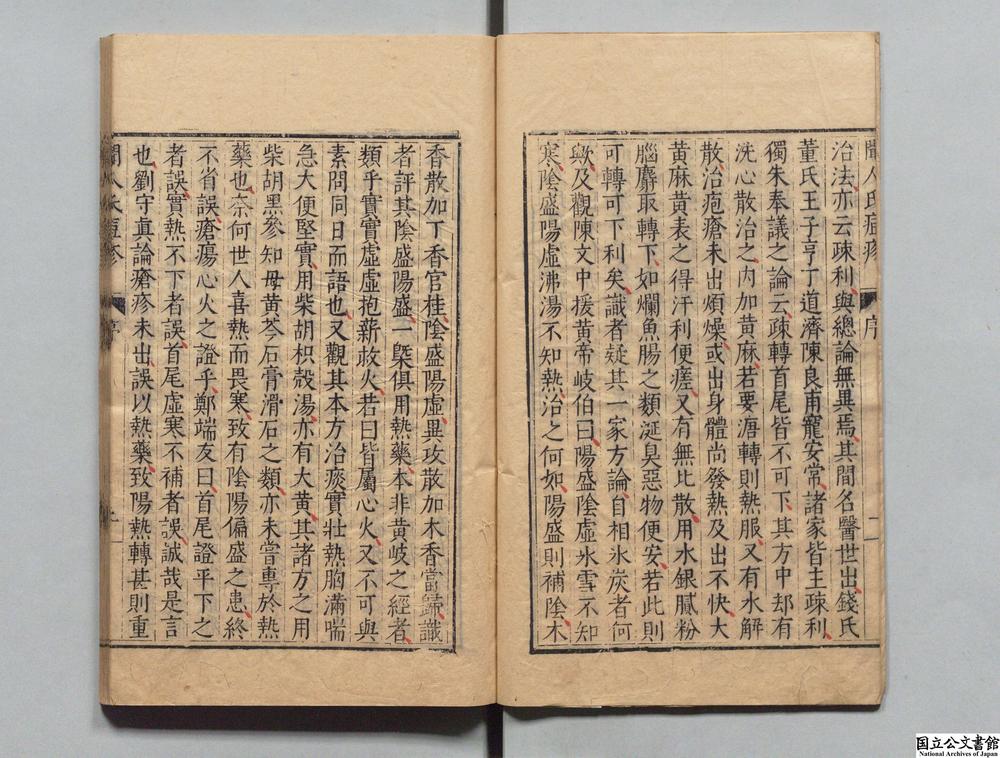 聞人氏痘疹 序 二
治法亦云疎利與總論無異焉其間名醫世出錢氏
董氏王子亨丁道濟陳良甫寵安常諸家皆主疎利
獨朱奉議之論云疎轉首尾皆不可下其方中却有
洗心散治之内加黄麻若要溏轉則熱服又有水解
散治疱瘡未出煩燥或出身體尚發熱及出不快大
黄麻黄表之得汗利便瘥又有無比散用水銀膩粉
腦麝取轉下如爛魚腸之類涎臭惡物便安若此則
可轉可下利矣識者疑其一家方論自相氷炭者何
歟及觀陳文中援黄帝岐伯曰陽盛陰虛氷雪不知
寒陰盛陽虛沸湯不知熱治之何如陽盛則補陰木
香散加丁香官桂陰盛陽虛異攻散加木香當歸識
者評其陰盛陽盛一槩俱用熱藥本非黄岐之經者
類乎實實虛虛抱薪救火若曰皆屬心火又不可與
素問同日而語也又觀其本方治痰實壮熱胸滿喘
急大便堅實用柴胡枳殻湯亦有大黄其諸方之用
柴胡黑參知母黄芩石膏滑石之類亦未嘗專於熱
藥也奈何世人喜熱而畏寒致有陰陽偏盛之患終
不省誤瘡瘍心火之證乎鄭端友曰首尾證平下之
者誤實熱不下者誤首尾虛寒不補者誤誠哉是言
也劉守真論瘡疹未出誤以熱藥致陽熱轉甚則重
聞人氏痘疹 序
国立公文書館
National Archives of Japan